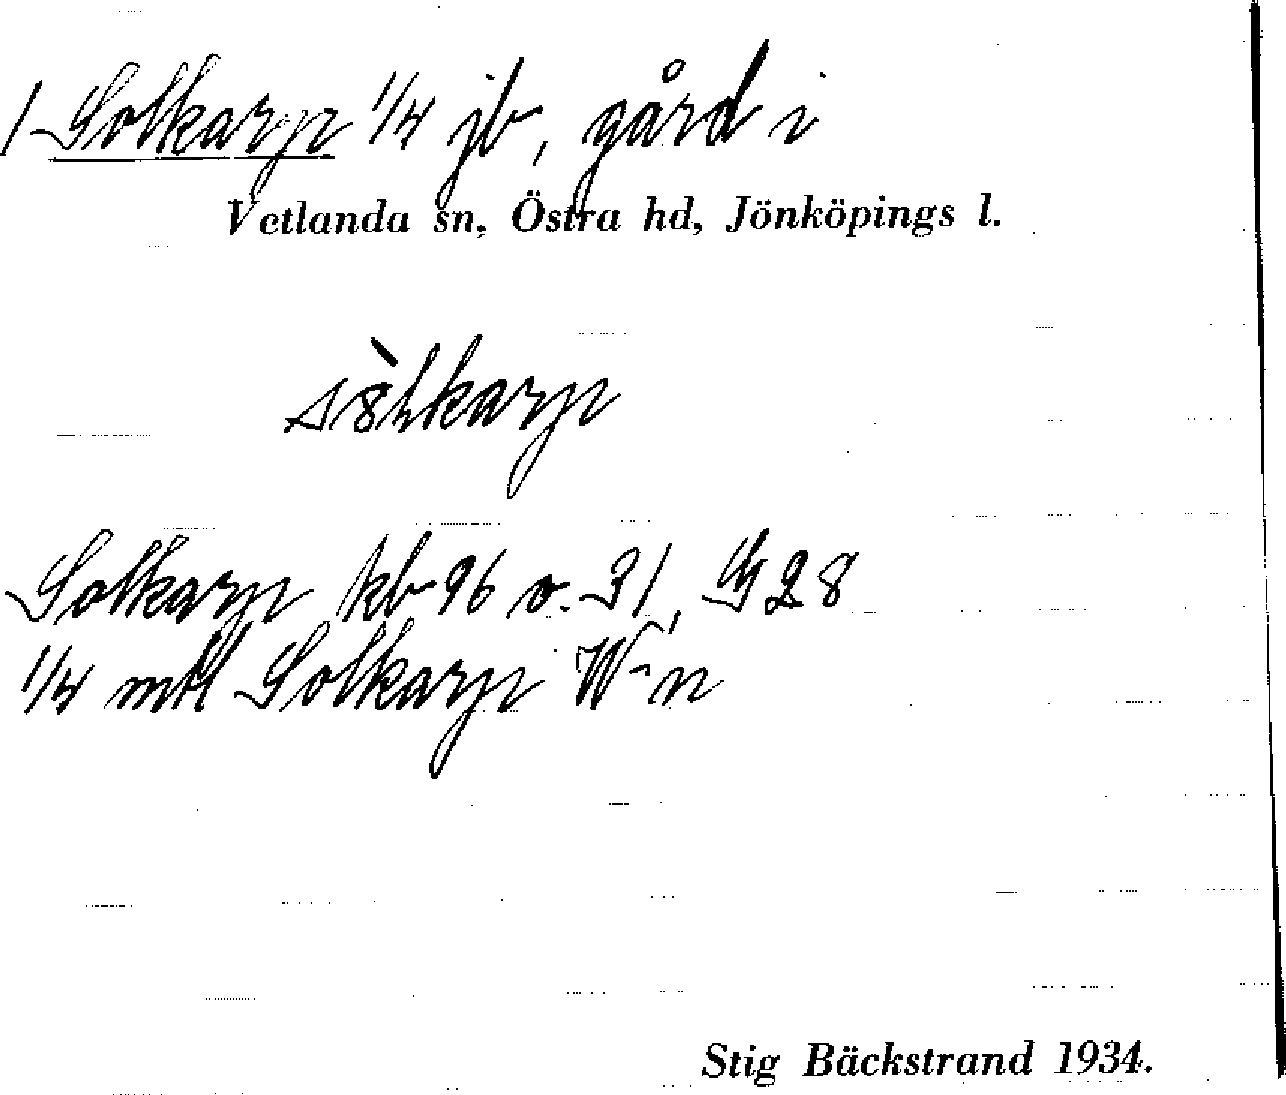 1 Solkarp 1/4 jb, gård i
Vetlanda sn, Östra hd, Jönköpings l.
Solkarp kb 96 o. 31, G 28
1/4 mtl Solkarp W-n
Stig Bäckstrand 1934.